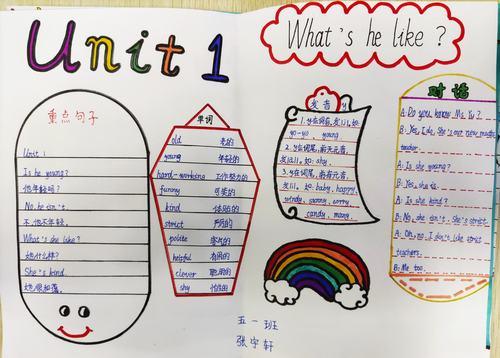 Unit 1
What's he like?
重点句子
Unit 1
Is he young?
他年轻吗?
No, he isn't.
不,他不年轻。
What's she like?
她什么样?
She's kind.
她很和蔼。
单词
old 老的
young 年轻的
hard-working 工作努力的
funny 可笑的
kind 体贴的
strict 严厉的
polite 有礼貌的
helpful 有用的
clever 聪明的
shy 怕羞的
发音 y
1. y在词首,发[j], 如:
yo-yo, young
2. y在词尾,前无元音,
发[ai], 如: shy.
3. y在词尾,前有元音,
发[i]. 如: baby, happy,
windy, sunny, sorry
candy, many.
对话
A: Do you know Mr. Yu?
B: Yes, I do. She's our new music
teacher.
A: Is she young?
B: Yes, she is.
A: Is she kind?
B: No, she isn't. She's strict.
A: Oh, no. I don't like strict
teachers.
B: Me too.
五一班
张宇轩